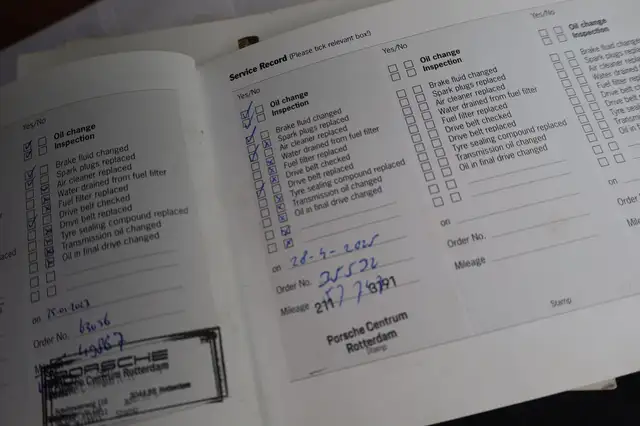 Yes/No
Oil change
Inspection
Brake fluid changed
Spark plugs replaced
Air cleaner replaced
Water drained from fuel filter
Fuel filter replaced
Drive belt checked
Drive belt replaced
Tyre sealing compound replaced
Transmission oil changed
Oil in final drive changed
on
Order No.
PORSCHE
Porsche Centrum Rotterdam
Service Record (Please tick relevant box!)
Yes/No
Oil change
Inspection
Brake fluid changed
Spark plugs replaced
Air cleaner replaced
Water drained from fuel filter
Fuel filter replaced
Drive belt checked
Drive belt replaced
Tyre sealing compound replaced
Transmission oil changed
Oil in final drive changed
on 28-4-2025
Order No. 35532
Mileage
Porsche Centrum
Rotterdam
Stamp
Yes/No
Oil change
Inspection
Brake fluid changed
Spark plugs replaced
Air cleaner replaced
Water drained from fuel filter
Fuel filter replaced
Drive belt checked
Drive belt replaced
Tyre sealing compound replaced
Transmission oil changed
Oil in final drive changed
on
Order No.
Mileage
Stamp
Yes/No
Oil change
Inspection
Brake fluid
Spark plugs
Air cleaner
Water drained
Fuel filter
Drive belt
Drive belt
Tyre sealing
Transmission
Oil in final
on
Order No.
Mileage